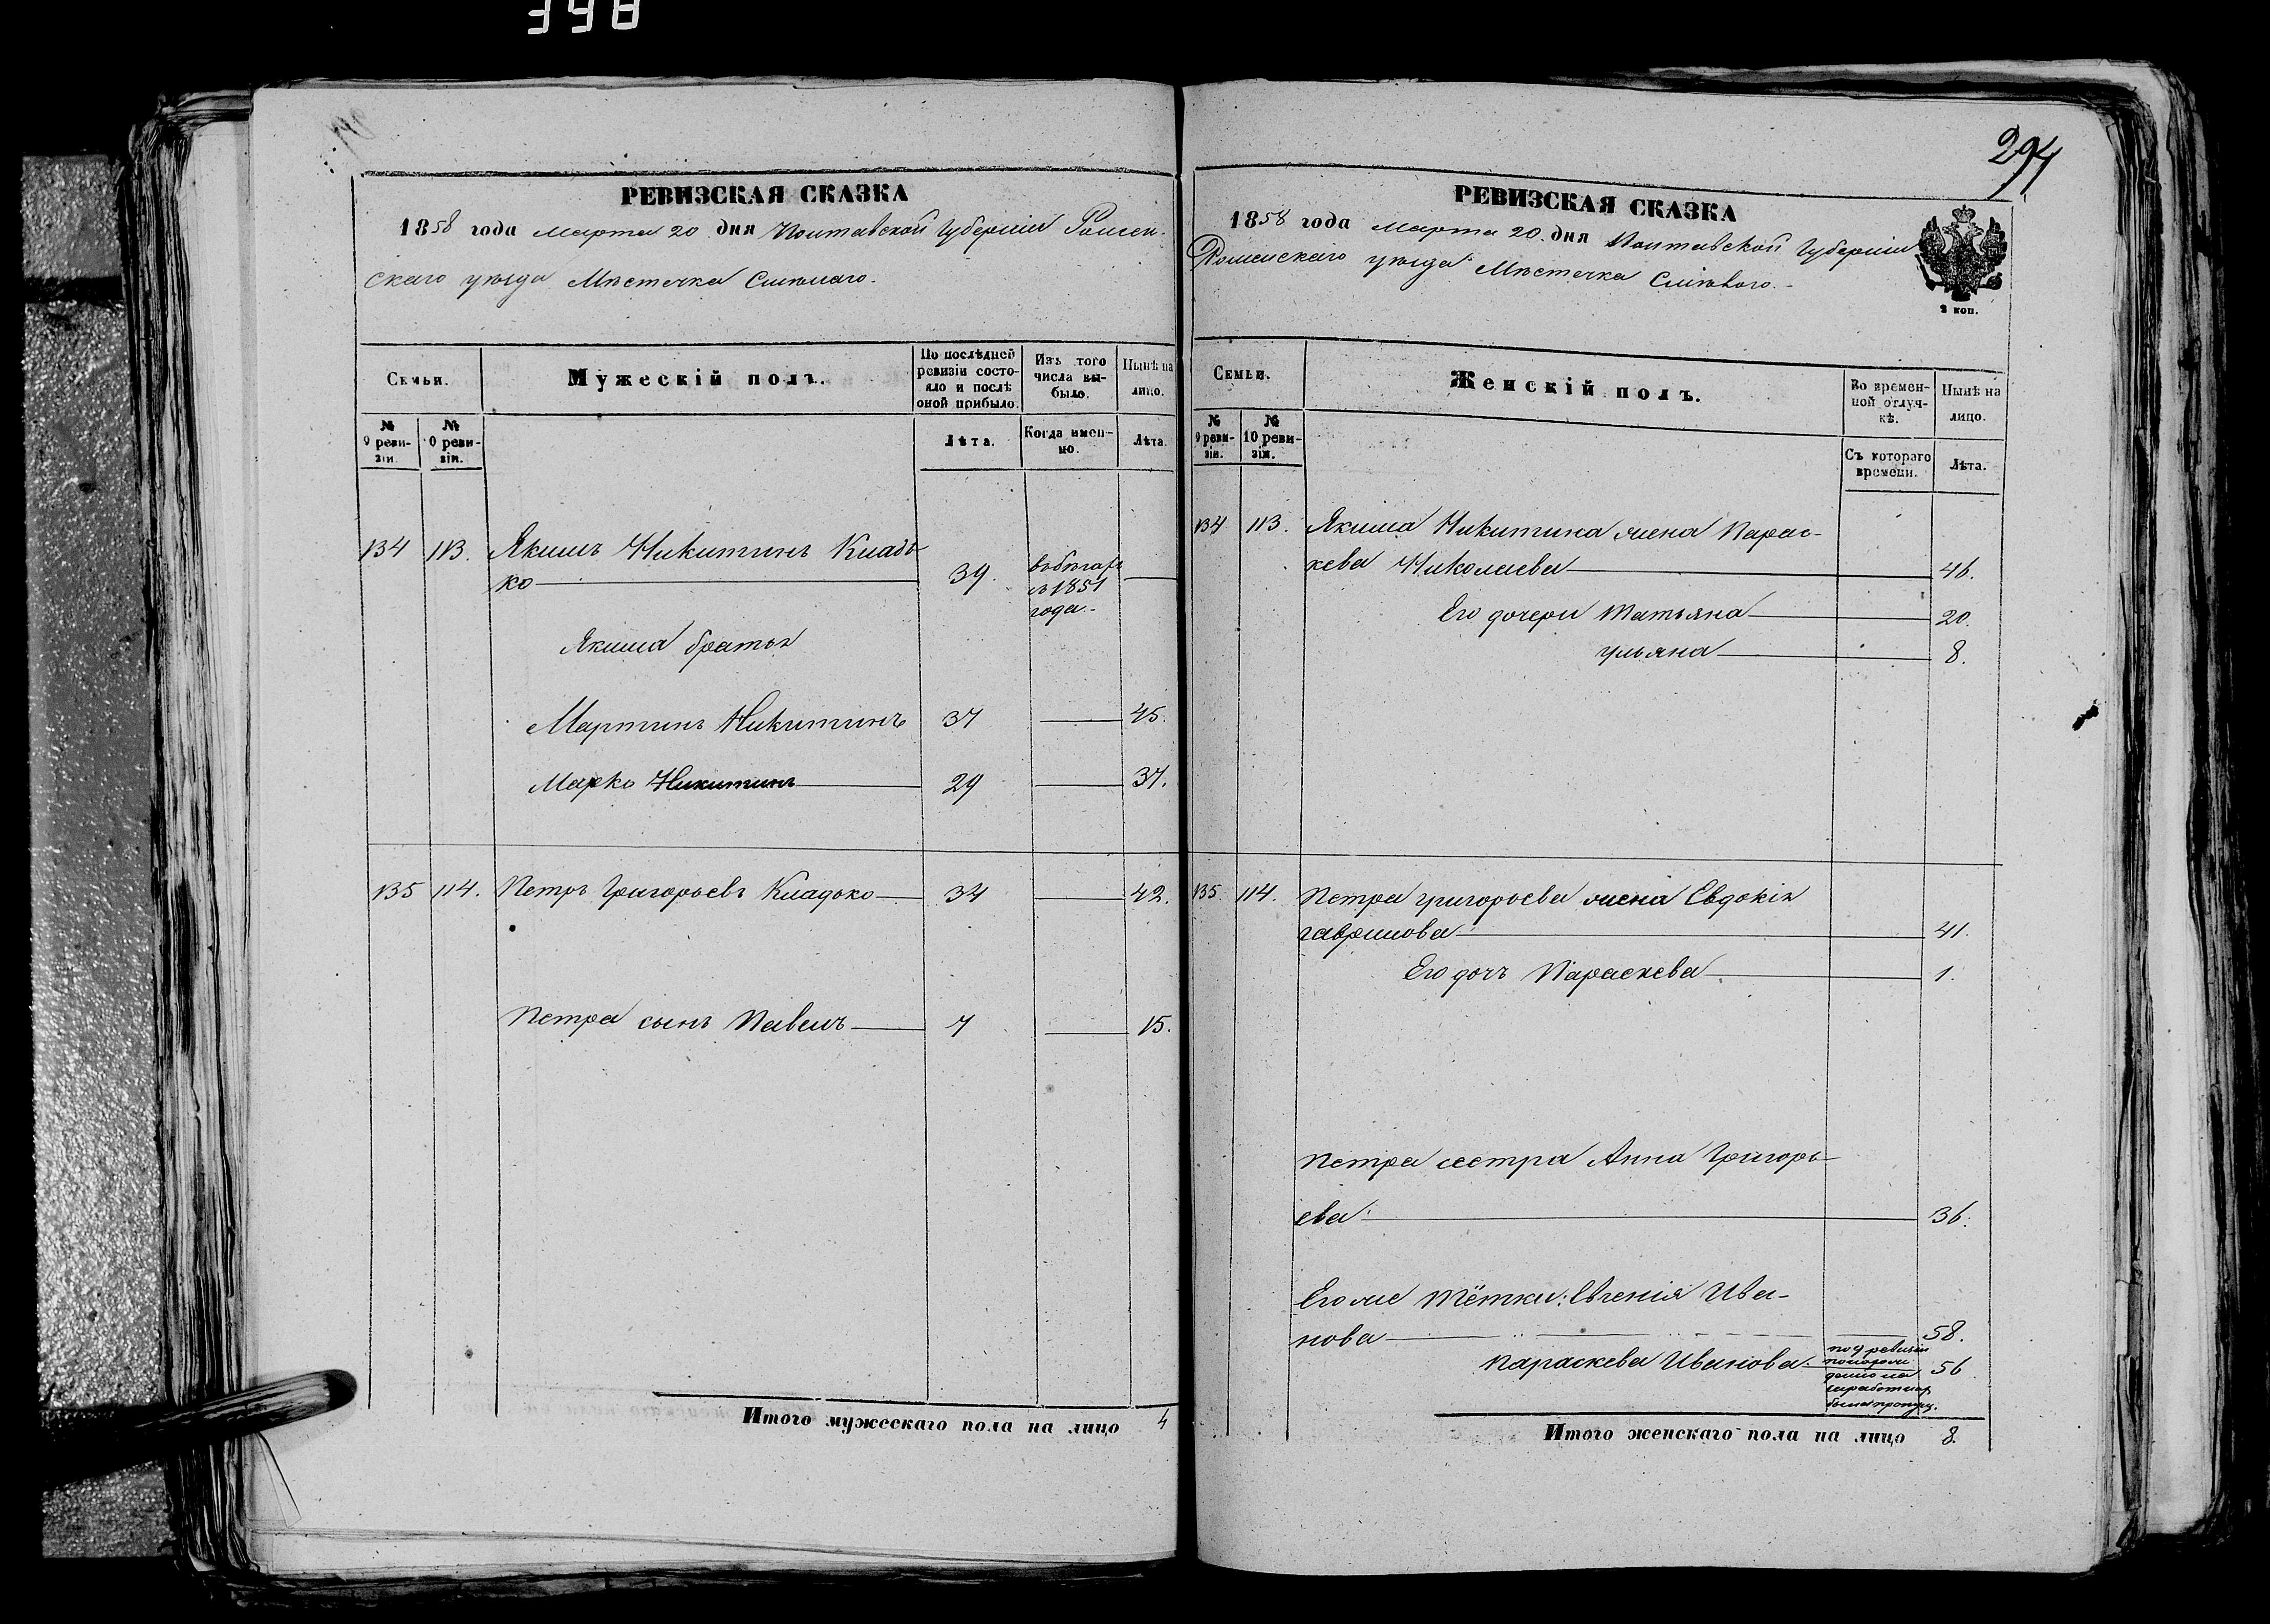 398
РЕВИЗСКАЯ СКАЗКА
1858 года Марта 20 дня Полтавской Губерніи Ромен-
скаго уѣзда Мѣстечка Смѣлаго.
Семьи.
Мужескій полъ.
По послѣдней ревизіи состояло и послѣ оной прибыло.
Изъ того числа выбыло.
Нынѣ на лицо.
№ 9 ревизіи.
№ 10 ревизіи.
Лѣта.
Когда именно.
Лѣта.
134 113. Якимъ Никитинъ Кладь-
ко 39. в бѣгах съ 1851 года.
Якима братья
Мартинъ Никитинъ 37 45.
Марко Никитинъ 29 37.
135 114. Петръ Григорьевъ Кладько 34 42.
Петра сынъ Павелъ 7 15.
Итого мужескаго пола на лицо 4
294
РЕВИЗСКАЯ СКАЗКА
1858 года Марта 20. дня Полтавской Губерніи
Роменскаго уѣзда Мѣстечка Смѣлого.
2 коп.
Семьи.
Женскій полъ.
Во временной отлучкѣ.
Нынѣ на лицо.
№ 9 ревизіи.
№ 10 ревизіи.
Съ котораго времени.
Лѣта.
134 113. Якима Никитина жена Парас-
кева Николаева 46.
Его дочери Татьяна 20.
Ульяна 8.
135. 114. Петра Григорьева жена Евдокія
Гаврилова 41.
Его дочь Параскева 1.
Петра сестра Анна Григорь-
ева 36.
Его же тётки: Евгенія Ива-
нова 58.
Параскева Иванова 56
по 9 ревизіи
Итого женскаго пола на лицо 8.